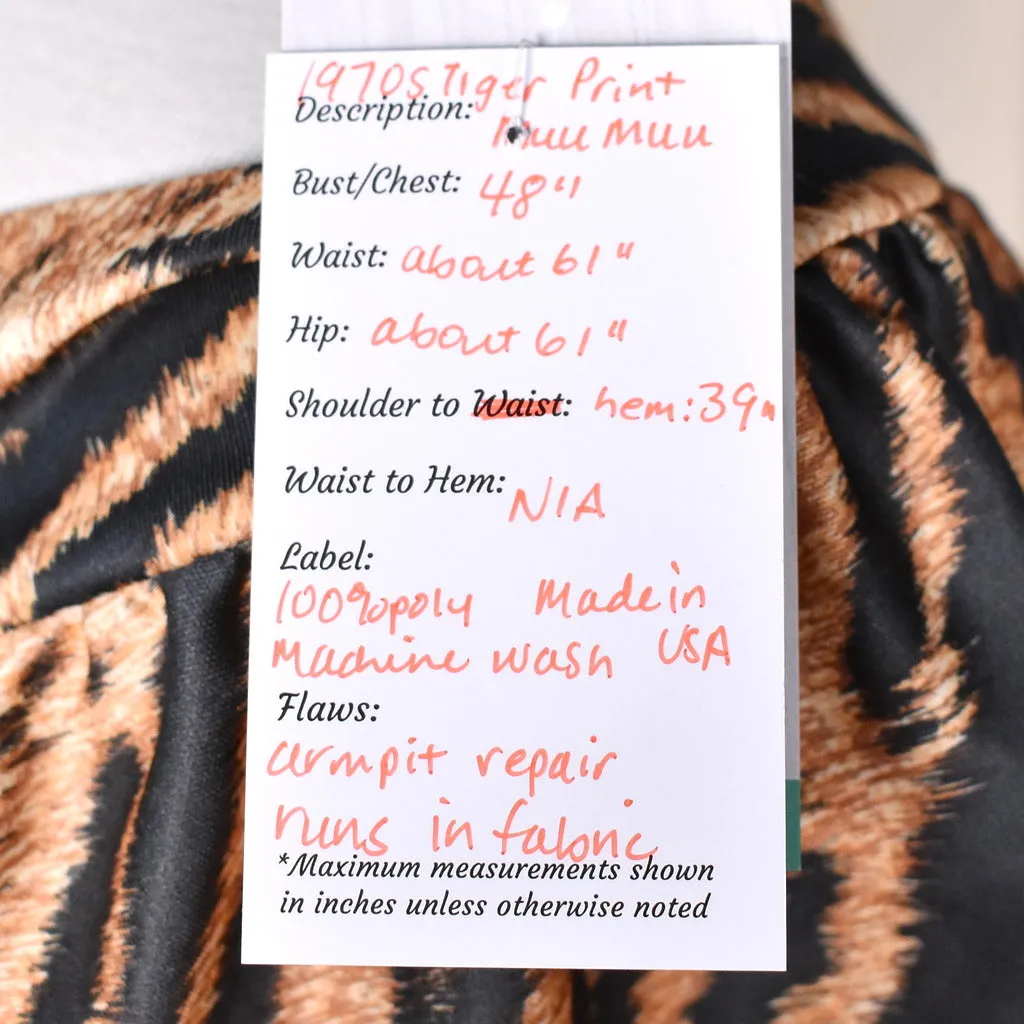 1970s Tiger Print
Description: Muu Muu
Bust/Chest: 48"
Waist: about 61"
Hip: about 61"
Shoulder to Waist: hem: 39"
Waist to Hem: N/A
Label:
100% poly Made in
Machine wash USA
Flaws:
armpit repair
runs in fabric
*Maximum measurements shown
in inches unless otherwise noted